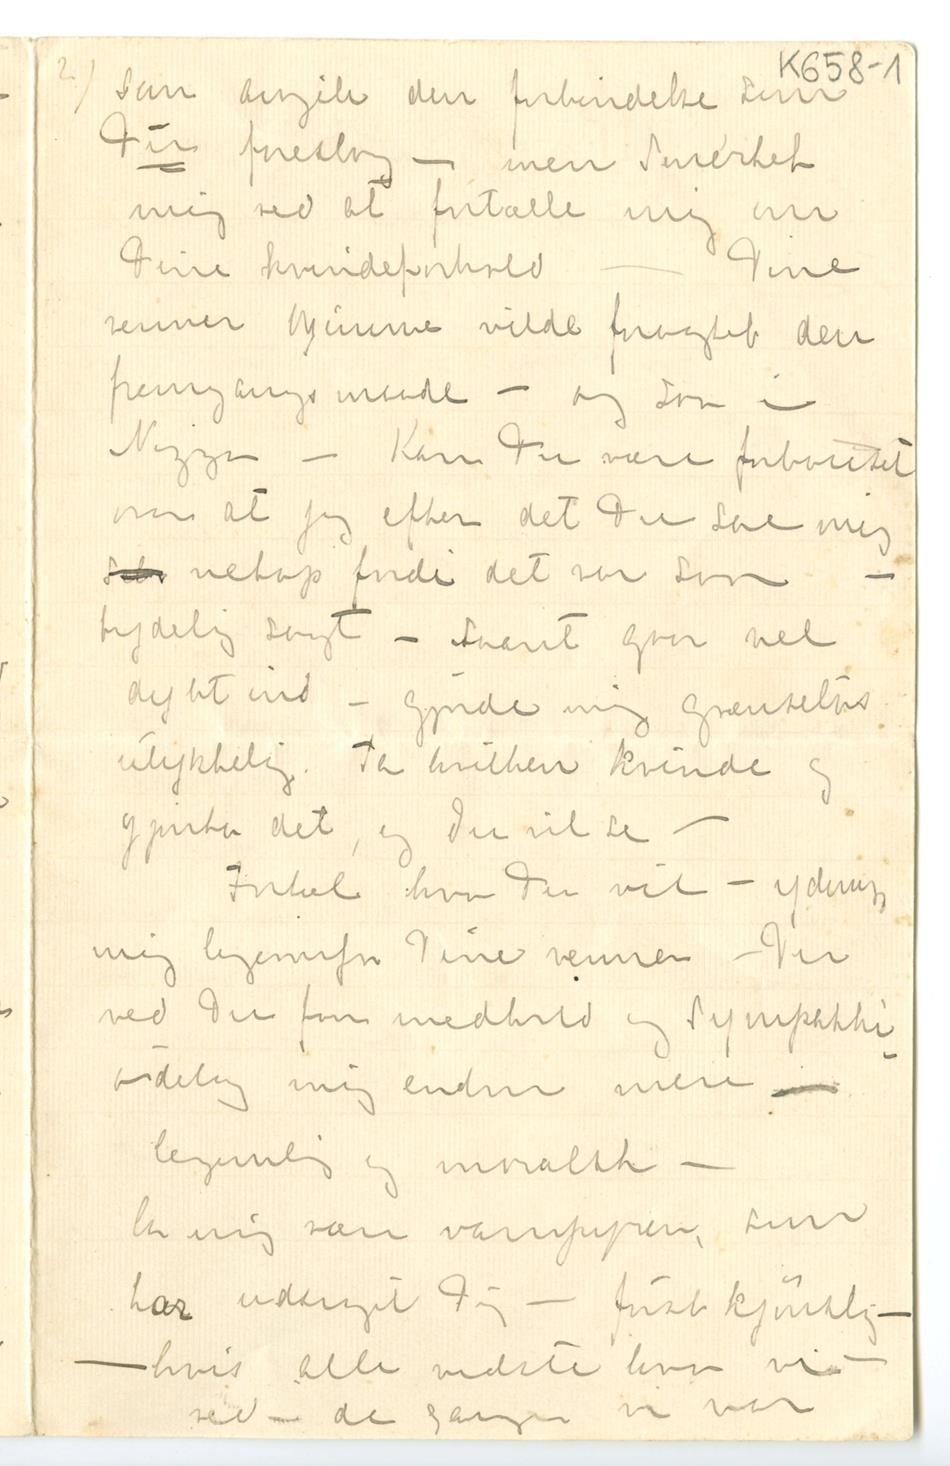 K658-1
2)
saa angik den forbindelse som
Du foreslog — men
mig ved at fortælle mig om
Dine kvindeforhold — Dine
venner hjemme vilde foragtet den
fremgangsmaade – og saa i
Nizza – Kan Du være forbauset
over at jeg efter det Du sae mig
netop fordi det var saa –
tydelig sagt – saaret gaar vel
dybt ind – gjorde mig grænseløs
ulykkelig. Ta hvilken kvinde
det, og Du vil se –
Fortæl hva Du vil –
mig Dine venner – Der
ved Du faar medhold og Sympathi
ødelæg mig endnu mere —
legemlig og moralsk –
la mig være vampyren, som
har udsuget Dig – først kjønslig –
– hvis alle vidste hvor vi –
ved – de ganger vi var